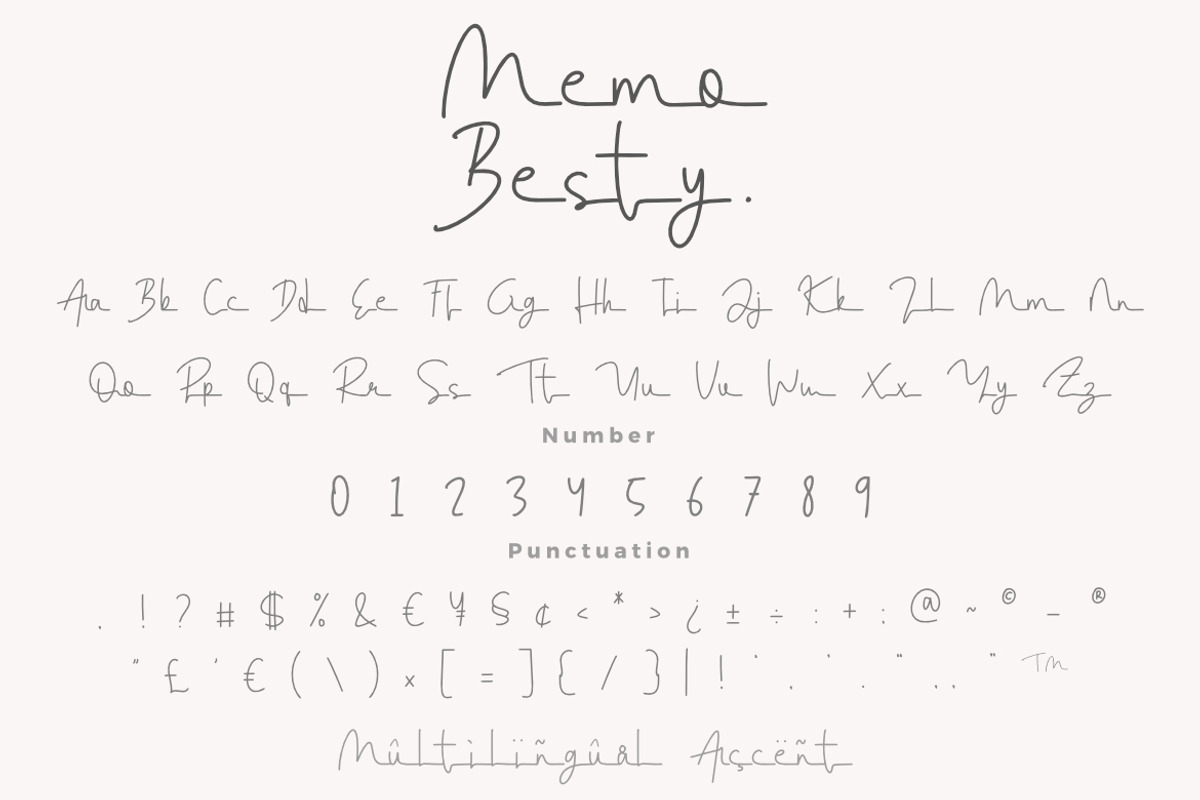 Memo
Besty.
Aa Bb Cc Dd Ee Ff Gg Hh Ii Jj Kk Ll Mm Nn
Oo Pp Qq Rr Ss Tt Uu Vv Ww Xx Yy Zz
Number
0 1 2 3 4 5 6 7 8 9
Punctuation
. ! ? # $ % & € ¥ § ¢ < * > ¿ ± ÷ : + : @ ~ © – ®
" £ ' € ( \ ) × [ = ] { / } | ! ' . ' . " .. " ™
Mûltìlïñgûål Açcëñt